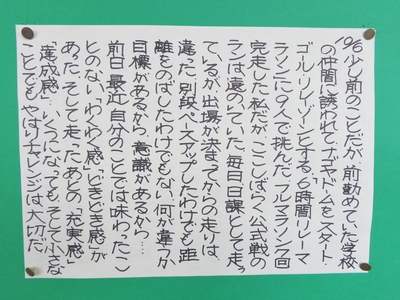 10/6 少し前のことだが、前勤めていた学校
の仲間に誘われて、ナゴヤドームをスタート、
ゴール、リレーゾーンとする、6時間リレーマ
ラソンに9人で挑んだ。フルマラソン7回
完走した私だが、ここしばらく公式戦の
ランは、遠のいていた。毎日日課として走っ
ているが、出場が決まってからの走りは、
違った。別段ペースアップしたわけでも距
離をのばしたわけでもない。何が違うか、
目標があるから、意識があるから…
前日、最近自分のことでは味わったこ
とのない「わくわく感」「どきどき感」が
あった。そして走ったあとの「充実感」
「達成感」いくつになっても、そして小さな
ことでも、やはりチャレンジは大切だ。